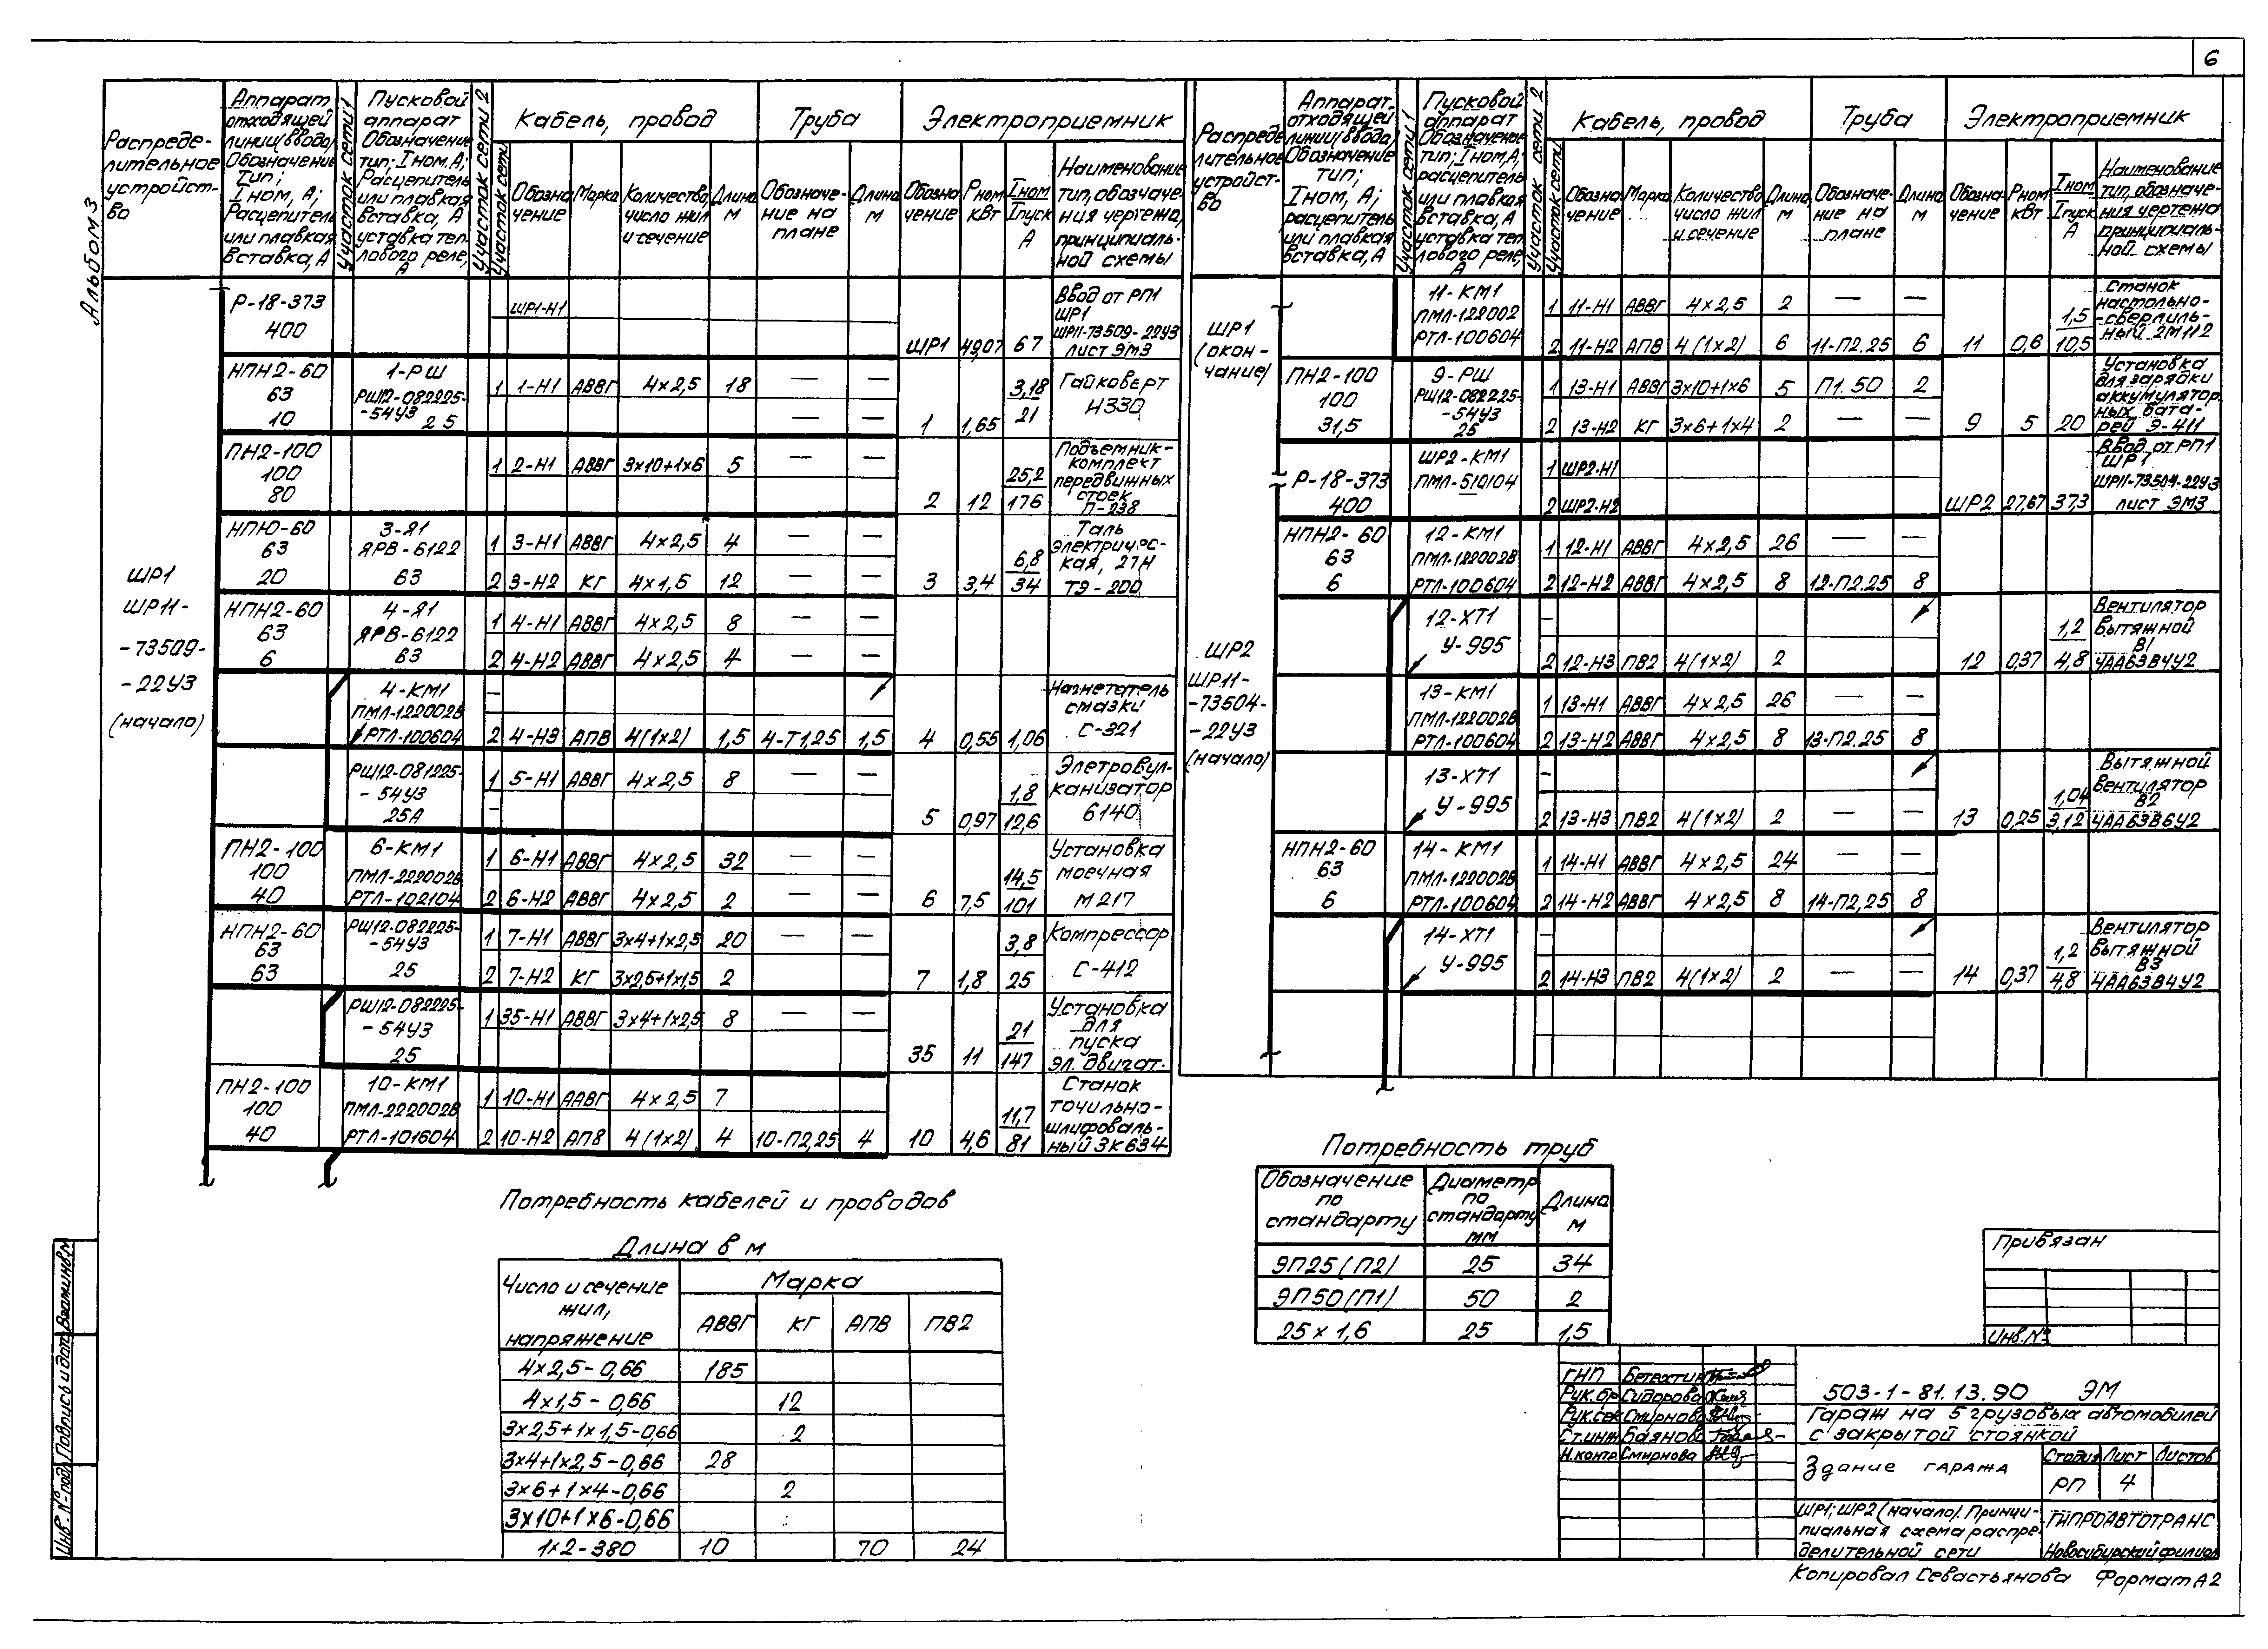 6
Альбом 3
Распреде-
лительное
устройст-
во
Аппарат
отходящей
линии (ввода)
Обозначение
Тип;
Iном, А;
Расцепитель
или плавкая
вставка, А
Участок сети 1
Пусковой
аппарат
Обозначение
тип; Iном, А;
Расцепитель
или плавкая
вставка, А
уставка теп-
лового реле,
А
Участок сети 2
Кабель, провод
Участок сети
Обозна
чение
Марка
Количество,
число жил
и сечение
Длина
м
Труба
Обозначе-
ние на
плане
Длина
м
Электроприемник
Обозна
чение
Рном
кВт
Iном
Iпуск
А
Наименование
тип, обозначе-
ния чертежа,
принципиаль-
ной схемы
ШР1
ШР11-
-73509-
-22У3
(начало)
Р-18-373
400
ШР1-Н1
ШР1 49,07 67
Ввод от РП1
ШР1
ШР11-73509-22У3
лист ЭМ3
НПН2-60
63
10
1-РШ
РШ12-082225-
-54У3
25
1 1-Н1 АВВГ 4×2,5 18 — —
— —
1 1,65 3,18
21
Гайковерт
И330
ПН2-100
100
80
1 2-Н1 АВВГ 3×10+1×6 5 — —
2 12 25,2
176
Подъемник-
комплект
передвижных
стоек
П-238
НПЮ-60
63
20
3-Я1
ЯРВ-6122
63
1 3-Н1 АВВГ 4×2,5 4 — —
2 3-Н2 КГ 4×1,5 12 — —
3 3,4 6,8
34
Таль
электричес-
кая, 27Н
ТЭ-200
НПН2-60
63
6
4-Я1
ЯРВ-6122
63
1 4-Н1 АВВГ 4×2,5 8 — —
2 4-Н2 АВВГ 4×2,5 4 — —
4-КМ1
ПМЛ-122002В
РТЛ-100604
—
2 4-Н3 АПВ 4(1×2) 1,5 4-Т1,25 1,5
4 0,55 1,06
Нагнетатель
смазки
С-321
РШ12-081225-
-54У3
25А
1 5-Н1 АВВГ 4×2,5 8 — —
—
5 0,97 1,8
12,6
Элетровул-
канизатор
6140
ПН2-100
100
40
6-КМ1
ПМЛ-222002В
РТЛ-102104
1 6-Н1 АВВГ 4×2,5 32 — —
2 6-Н2 АВВГ 4×2,5 2 — —
6 7,5 14,5
101
Установка
моечная
М217
НПН2-60
63
63
РШ12-082225-
-54У3
25
1 7-Н1 АВВГ 3×4+1×2,5 20 — —
2 7-Н2 КГ 3×2,5+1×1,5 2 — —
7 1,8 3,8
25
Компрессор
С-412
РШ12-082225-
-54У3
25
1 35-Н1 АВВГ 3×4+1×2,5 8 — —
35 11 21
147
Установка
для
пуска
эл. двигат.
ПН2-100
100
40
10-КМ1
ПМЛ-222002В
РТЛ-101604
1 10-Н1 ААВГ 4×2,5 7
2 10-Н2 АПВ 4(1×2) 4 10-П2,25 4
10 4,6 11,7
81
Станок
точильно-
шлифоваль-
ный 3К634
Распреде
лительное
устройст-
во
Аппарат.
отходящей
линии (ввода)
Обозначение
тип;
Iном, А;
расцепитель
или плавкая
вставка, А
Участок сети 1
Пусковой
аппарат
Обозначение
тип; Iном, А;
расцепитель
или плавкая
вставка, А
уставка теп
лового реле,
А
Участок сети 2
Кабель, провод
Участок сети
Обозна
чение
Марка
Количество
число жил
и сечение
Длина
м
Труба
Обозначе-
ние на
плане
Длина
м
Электроприемник
Обозна-
чение
Рном
кВт
Iном
Iпуск
А
Наименование
тип, обозначе-
ния чертежа
принципиаль-
ной схемы
ШР1
(окон-
чание)
11-КМ1
ПМЛ-122002
РТЛ-100604
1 11-Н1 АВВГ 4×2,5 2 — —
2 11-Н2 АПВ 4(1×2) 6 11-П2.25 6
11 0,6 1,5
10,5
Станок
настольно-
-сверлиль-
ный 2М112
ПН2-100
100
31,5
9-РШ
РШ12-082225-
-54У3
25
1 13-Н1 АВВГ 3×10+1×6 5 П1.50 2
2 13-Н2 КГ 3×6+1×4 2 — —
9 5 20
Установка
для зарядки
аккумулятор
ных бата-
рей Э-411
ШР2
ШР11-
-73504-
-22У3
(начало)
Р-18-373
400
ШР2-КМ1
ПМЛ-510104
1 ШР2-Н1
2 ШР2-Н2
ШР2 27,67 37,3
Ввод от РП1
ШР1
ШР11-73504-22У3
лист ЭМ3
НПН2-60
63
6
12-КМ1
ПМЛ-122002В
РТЛ-100604
1 12-Н1 АВВГ 4×2,5 26 — —
2 12-Н2 АВВГ 4×2,5 8 12-П2.25 8
12-ХТ1
У-995
—
2 12-Н3 ПВ2 4(1×2) 2
12 0,37 1,2
4,8
Вентилятор
вытяжной
В1
4АА63В4У2
13-КМ1
ПМЛ-122002В
РТЛ-100604
1 13-Н1 АВВГ 4×2,5 26 — —
2 13-Н2 АВВГ 4×2,5 8 13-П2.25 8
13-ХТ1
У-995
—
2 13-Н3 ПВ2 4(1×2) 2 — —
13 0,25 1,04
3,12
Вытяжной
вентилятор
В2
4АА63В6У2
НПН2-60
63
6
14-КМ1
ПМЛ-122002В
РТЛ-100604
1 14-Н1 АВВГ 4×2,5 24 — —
2 14-Н2 АВВГ 4×2,5 8 14-П2,25 8
14-ХТ1
У-995
—
2 14-Н3 ПВ2 4(1×2) 2 — —
14 0,37 1,2
4,8
Вентилятор
вытяжной
В3
4АА63В4У2
Потребность кабелей и проводов
Длина в м
Число и сечение
жил,
напряжение
Марка
АВВГ КГ АПВ ПВ2
4×2,5-0,66 185
4×1,5-0,66 12
3×2,5+1×1,5-0,66 2
3×4+1×2,5-0,66 28
3×6+1×4-0,66 2
3×10+1×6-0,66
1×2-380 10 70 24
Потребность труб
Обозначение
по
стандарту
Диаметр
по
стандарту
мм
Длина
м
ЭП25(П2) 25 34
ЭП50(П1) 50 2
25×1,6 25 1,5
Привязан
Инв.№
ГИП Бетехтин
Рук.бр Сидорова
Рук.сек Смирнова
Ст.инж Баянова
Н.контр. Смирнова
503-1-81.13.90 ЭМ
Гараж на 5 грузовых автомобилей
с закрытой стоянкой
Здание гаража
Стадия Лист Листов
РП 4
ШР1; ШР2 (начало). Принци-
пиальная схема распре-
делительной сети
ГИПРОАВТОТРАНС
Новосибирский филиал
Копировал Севастьянова Формат А2
Взам.инв.№
Подпись и дата
Инв.№ подл